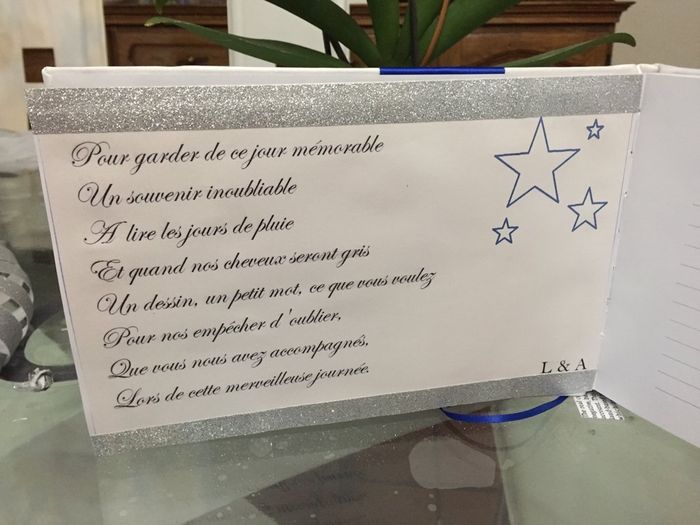 Pour garder de ce jour mémorable
Un souvenir inoubliable
A lire les jours de pluie
Et quand nos cheveux seront gris
Un dessin, un petit mot, ce que vous voulez
Pour nos empêcher d'oublier,
Que vous nous avez accompagnés,
Lors de cette merveilleuse journée.
L & A